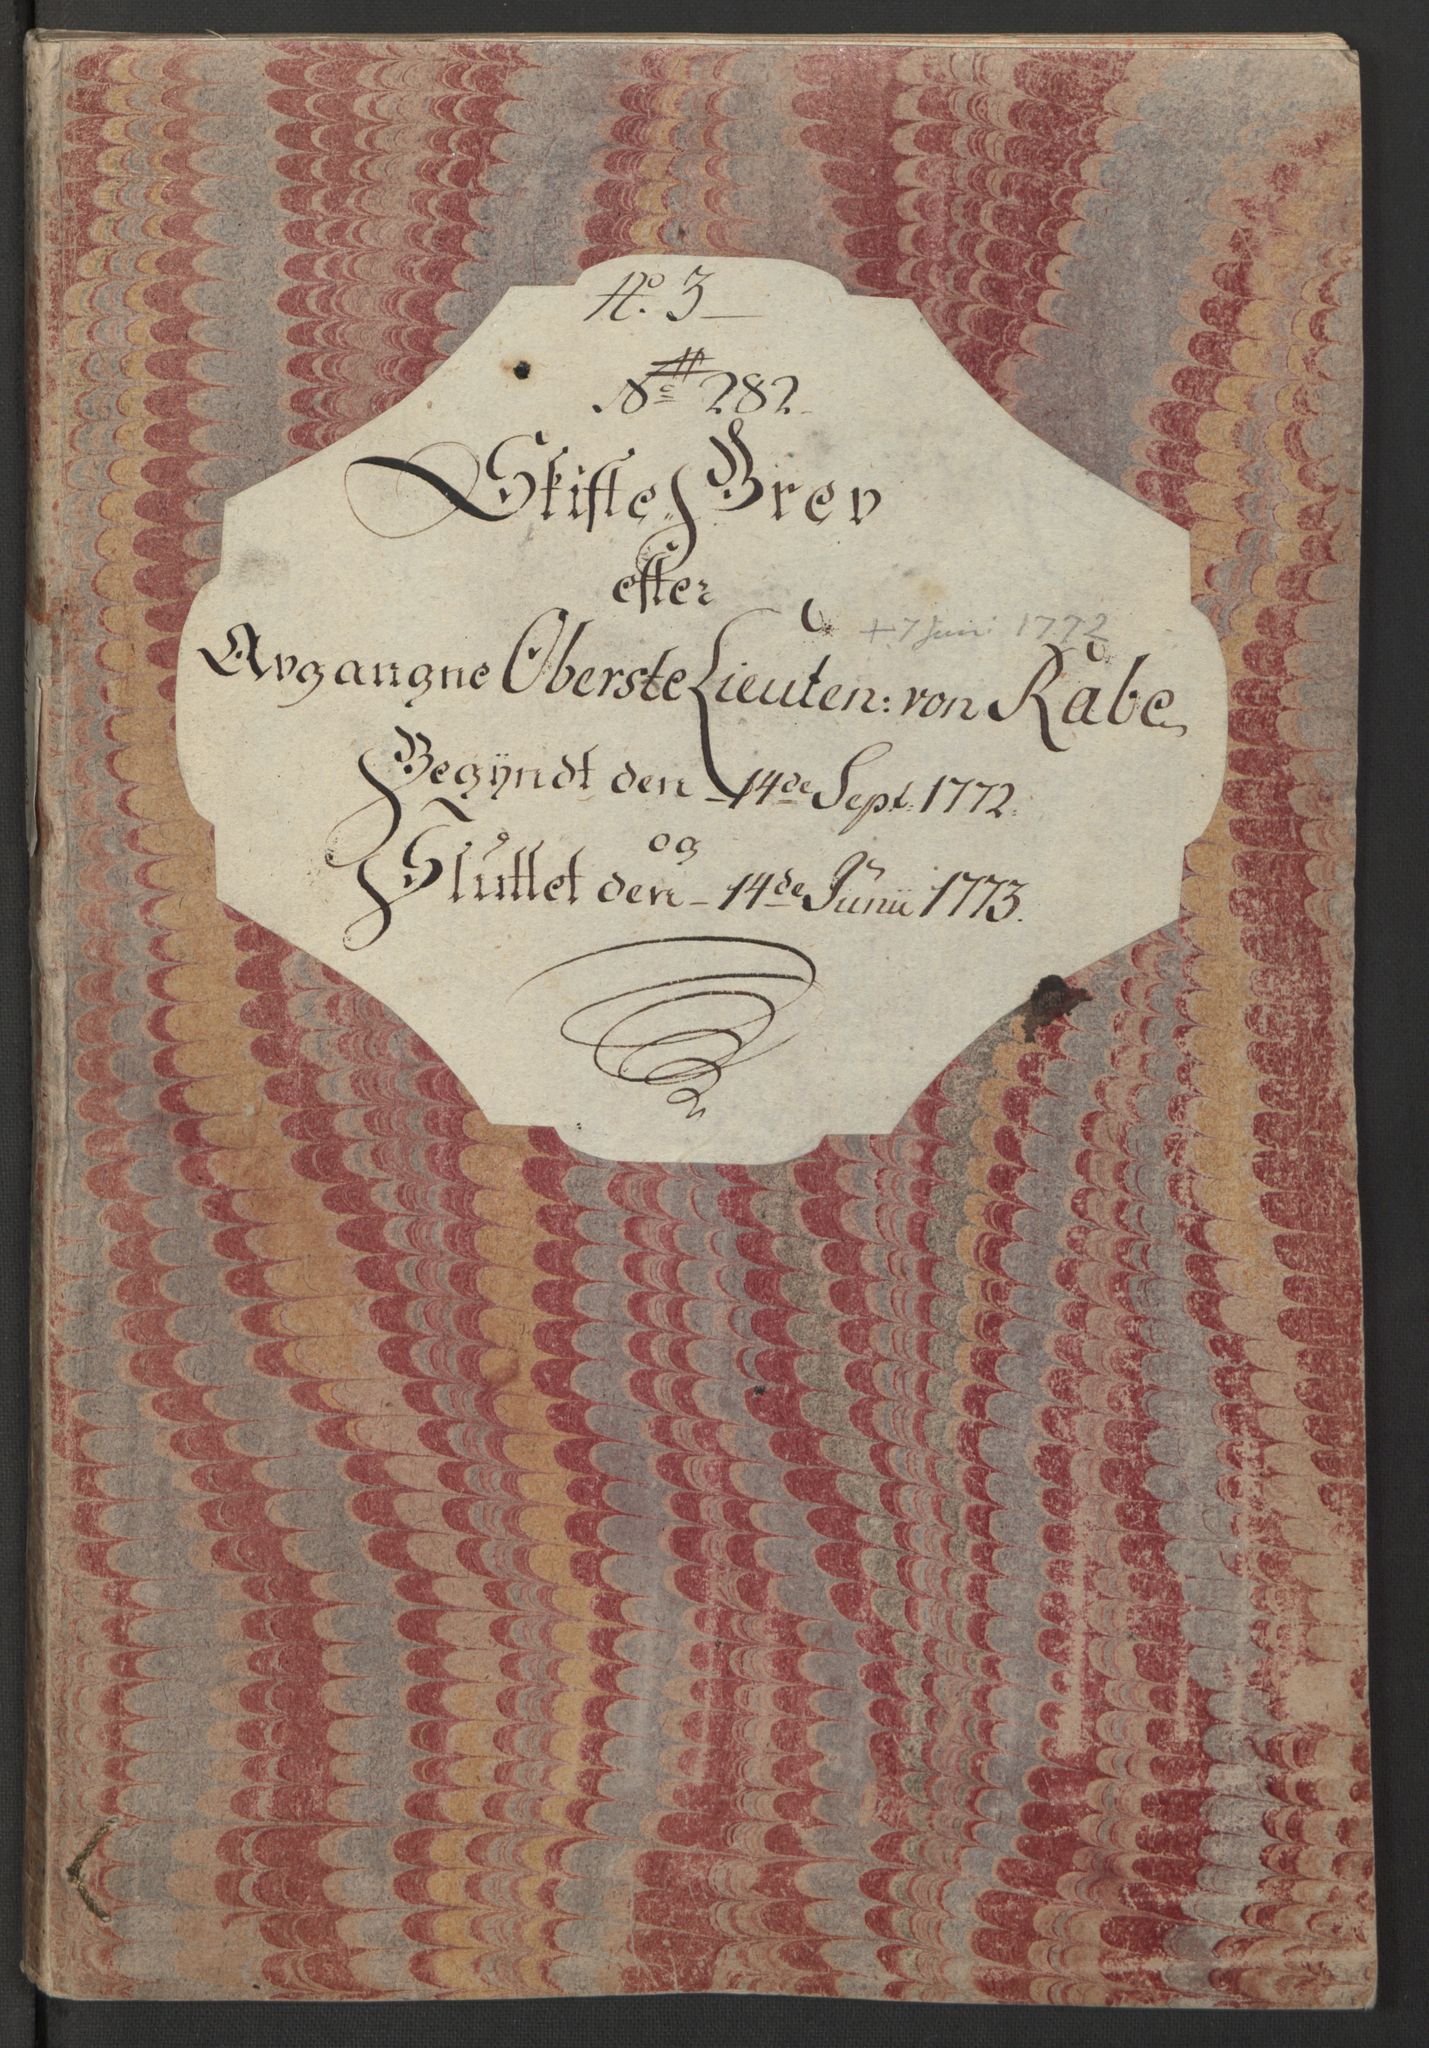 No. 3
No 282
Skifte Brev
efter
+ 7 Juni 1772
Avgangne Oberste Lieuten: von Rabe
Begyndt den 14de Sept. 1772.
og
Sluttet den 14de Junii 1773.